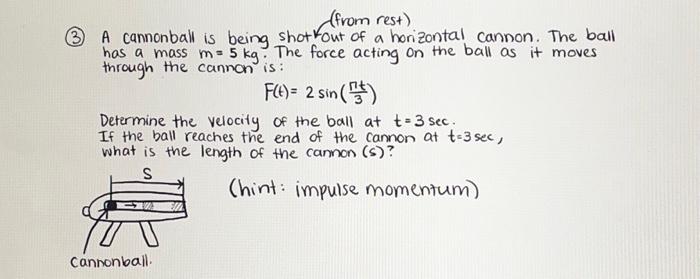 (from rest)
③ A cannonball is being shot out of a horizontal cannon. The ball
has a mass m = 5 kg. The force acting on the ball as it moves
through the cannon is:
F(t) = 2 sin(πt/3)
Determine the velocity of the ball at t = 3 sec.
If the ball reaches the end of the cannon at t=3 sec,
what is the length of the cannon (s)?
S
(hint: impulse momentum)
cannonball.